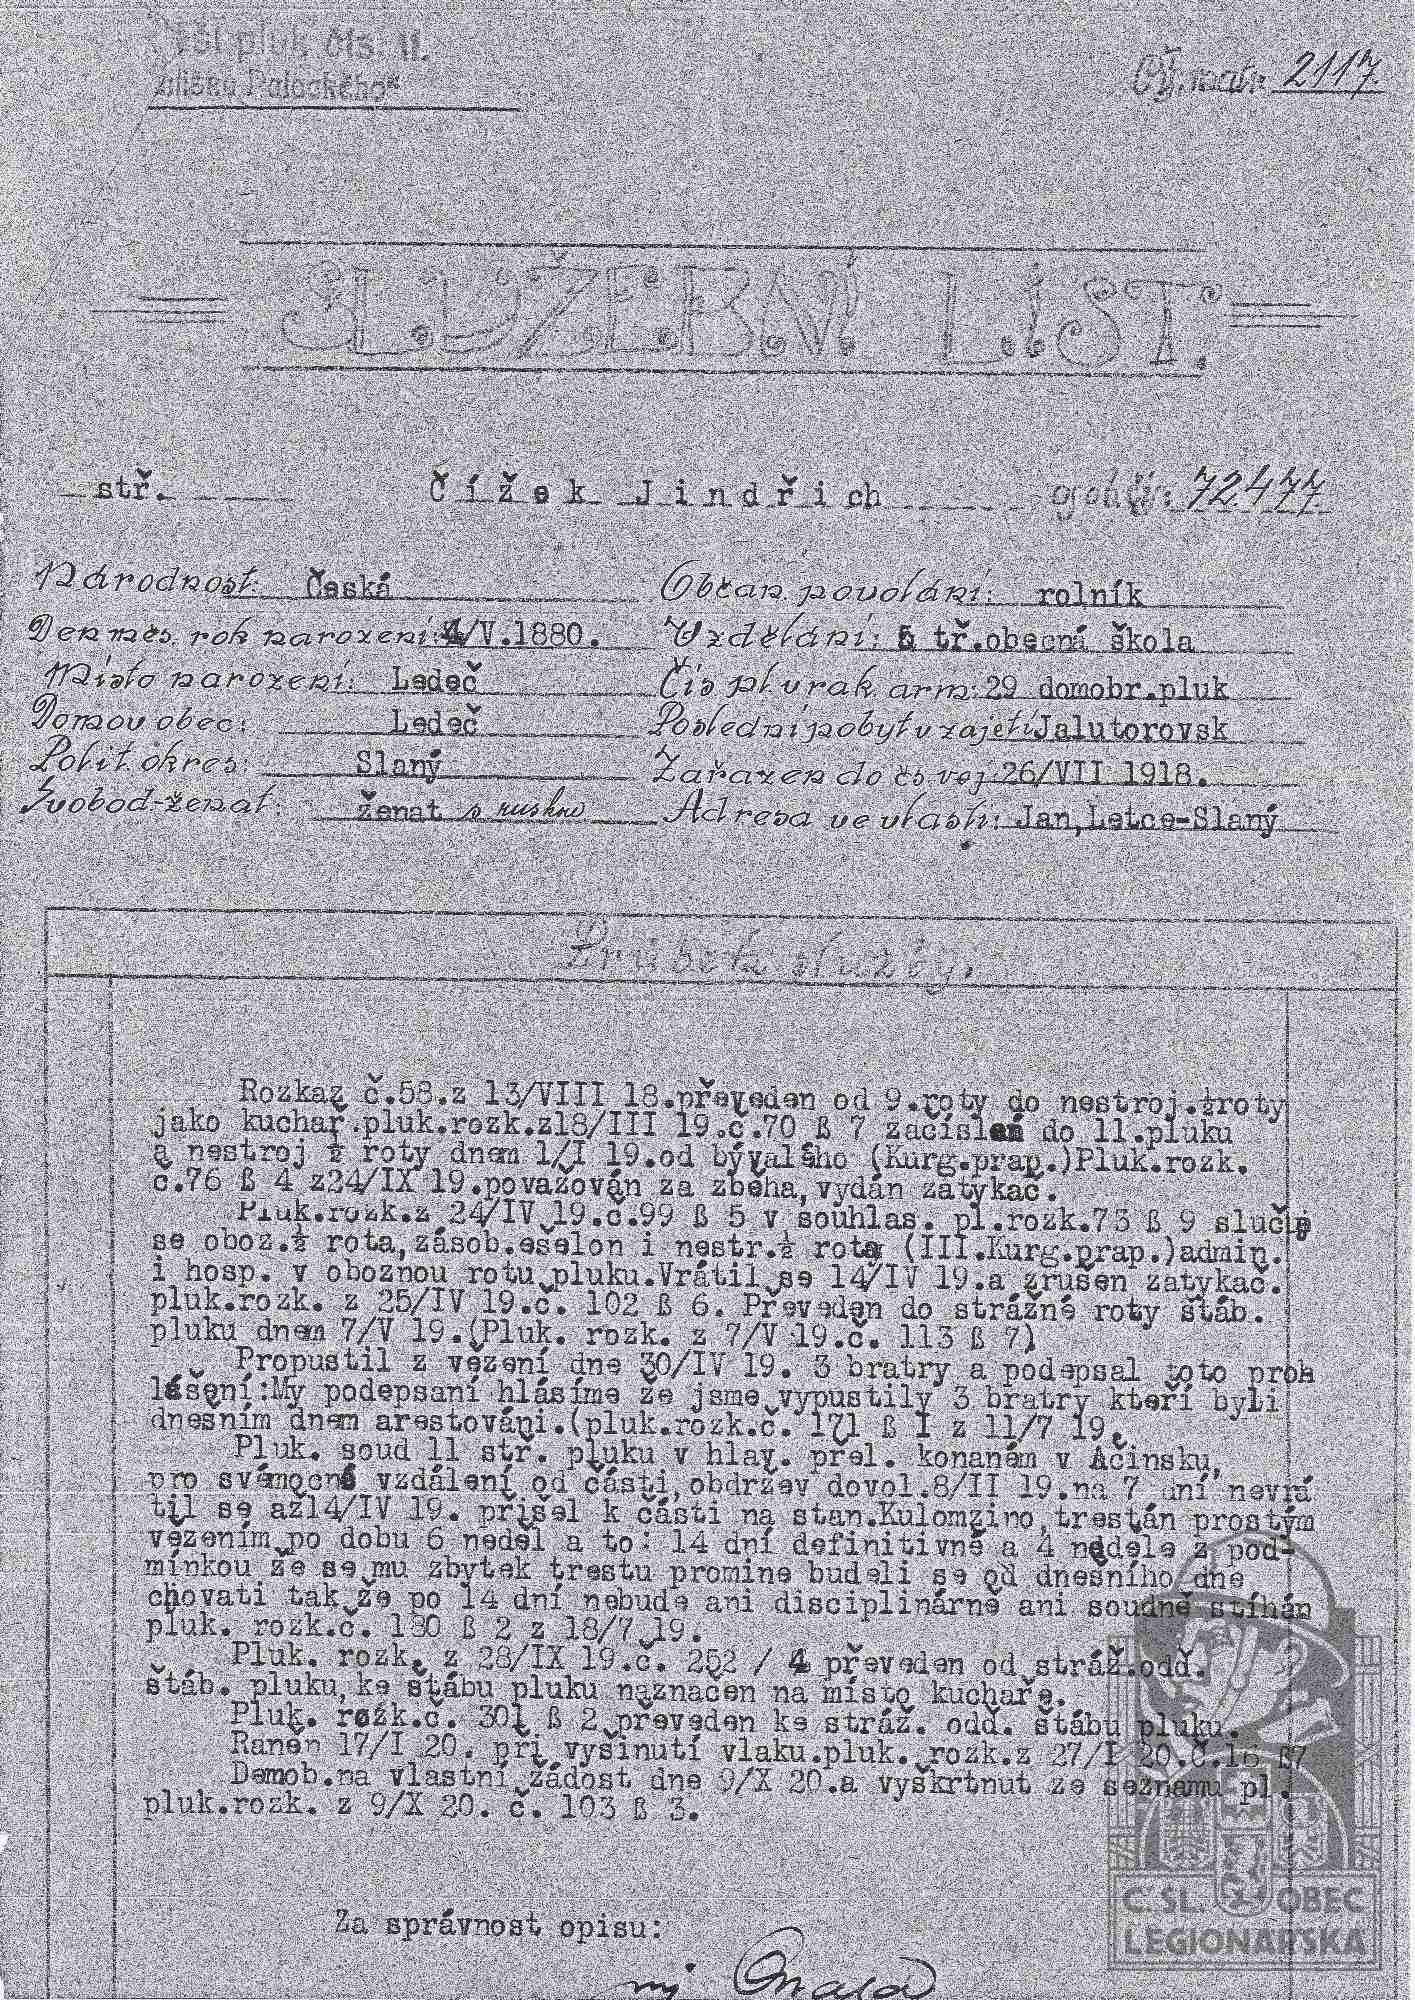 pluk čís. 11.
Palackého"
Čís. mat: 2117.
SLUŽEBNÍ LIST.
stř. Čížek Jindřich osob. čís: 72.477.
Národnost: Česká
Občan. povolání: rolník
Den měs. rok narození: 4/V.1880.
Vzdělání: 5 tř.obecná škola
Místo narození: Ledeč
Čís pl. v rak. arm: 29 domobr.pluk
Domov. obec: Ledeč
Poslední pobyt v zajetí Jalutorovsk
Polit. okres: Slaný
Zařazen do čs voj: 26/VII 1918.
Svobod-ženat: ženat s ruskou
Adresa ve vlasti: Jan,Letce-Slaný
Průběh služby.
Rozkaz č.58.z 13/VIII 18.převeden od 9.roty do nestroj.½roty
jako kuchař.pluk.rozk.z18/III 19.č.70 ß 7 začíslen do 11.pluku
a nestroj ½ roty dnem 1/I 19.od bývalého (Kurg.prap.)Pluk.rozk.
č.76 ß 4 z24/IX 19.považován za zběha,vydán zatykač.
Pluk.rozk.z 24/IV 19.č.99 ß 5 v souhlas. pl.rozk.73 ß 9 slučuje
se oboz.½ rota,zásob.ešelon i nestr.½ rota (III.Kurg.prap.)admin.
i hosp. v oboznou rotu pluku.Vrátil se 14/IV 19.a zrušen zatykač.
pluk.rozk. z 25/IV 19.č. 102 ß 6. Převeden do strážné roty štáb.
pluku dnem 7/V 19.(Pluk. rozk. z 7/V 19.č. 113 ß 7)
Propustil z vězení dne 30/IV 19. 3 bratry a podepsal toto proh
lášení:My podepsaní hlásíme že jsme vypustily 3 bratry kteří byli
dnešním dnem arestováni.(pluk.rozk.č. 171 ß I z 11/7 19.
Pluk. soud 11 stř. pluku v hlav. přel. konaném v Ačinsku,
pro svémocné vzdálení od části,obdržev dovol.8/II 19.na 7 dní nevrá
til se až14/IV 19. přišel k části na stan.Kulomzino,trestán prostým
vězením po dobu 6 neděl a to: 14 dní definitivně a 4 neděle z pod-
mínkou že se mu zbytek trestu promine budeli se od dnešního dne
chovati tak že po 14 dní nebude ani disciplinárně ani soudně stíhán
pluk. rozk.č. 180 ß 2 z 18/7 19.
Pluk. rozk. z 28/IX 19.č. 252 / 4 převeden od stráž.odd.
štáb. pluku,ke štábu pluku naznačen na místo kuchaře.
Pluk. rozk.č. 301 ß 2 převeden ke stráž. odd. štábu pluku.
Raněn 17/I 20. při vyšinutí vlaku.pluk. rozk.z 27/I 20.č.16 ß7
Demob.na vlastní žádost dne 9/X 20.a vyškrtnut ze seznamu pl.
pluk.rozk. z 9/X 20. č. 103 ß 3.
Za správnost opisu:
Č. SL. OBEC
LEGIONÁŘSKÁ